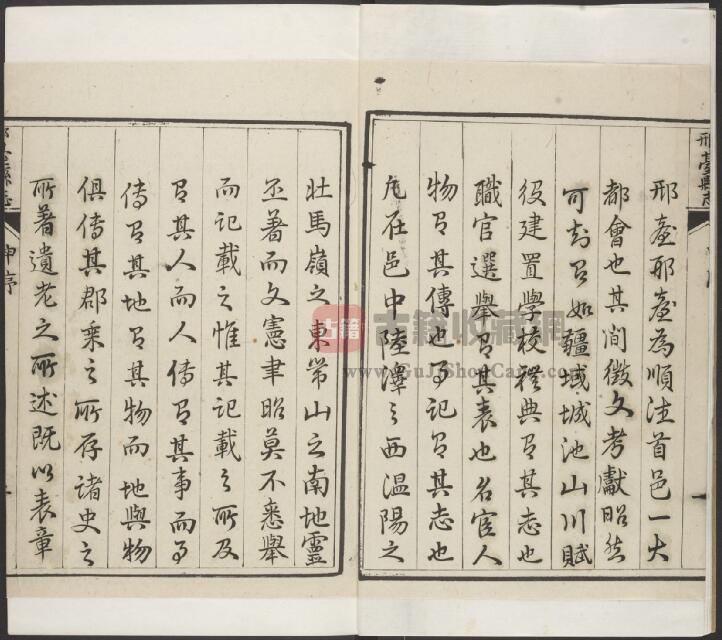 邢臺縣志
邢臺邢臺為順德首邑一大
都會也其間徵文考獻昭然
可知有如疆域城池山川賦
役建置學校禮典有其志也
職官選舉有其表也名宦人
物有其傳也事記有其志也
凡在邑中陸澤之西溫陽之
壯馬嶺之東常山之南地靈
丕著而文憲聿昭莫不悉舉
而記載之惟其記載之所及
有其人而人傳有其事而事
傳有其地有其物而地與物
俱傳其郡乘之所存諸史之
所著遺老之所述既以表章
邢臺縣志
序
古籍 古籍收藏網
www.GuJiShouCang.com